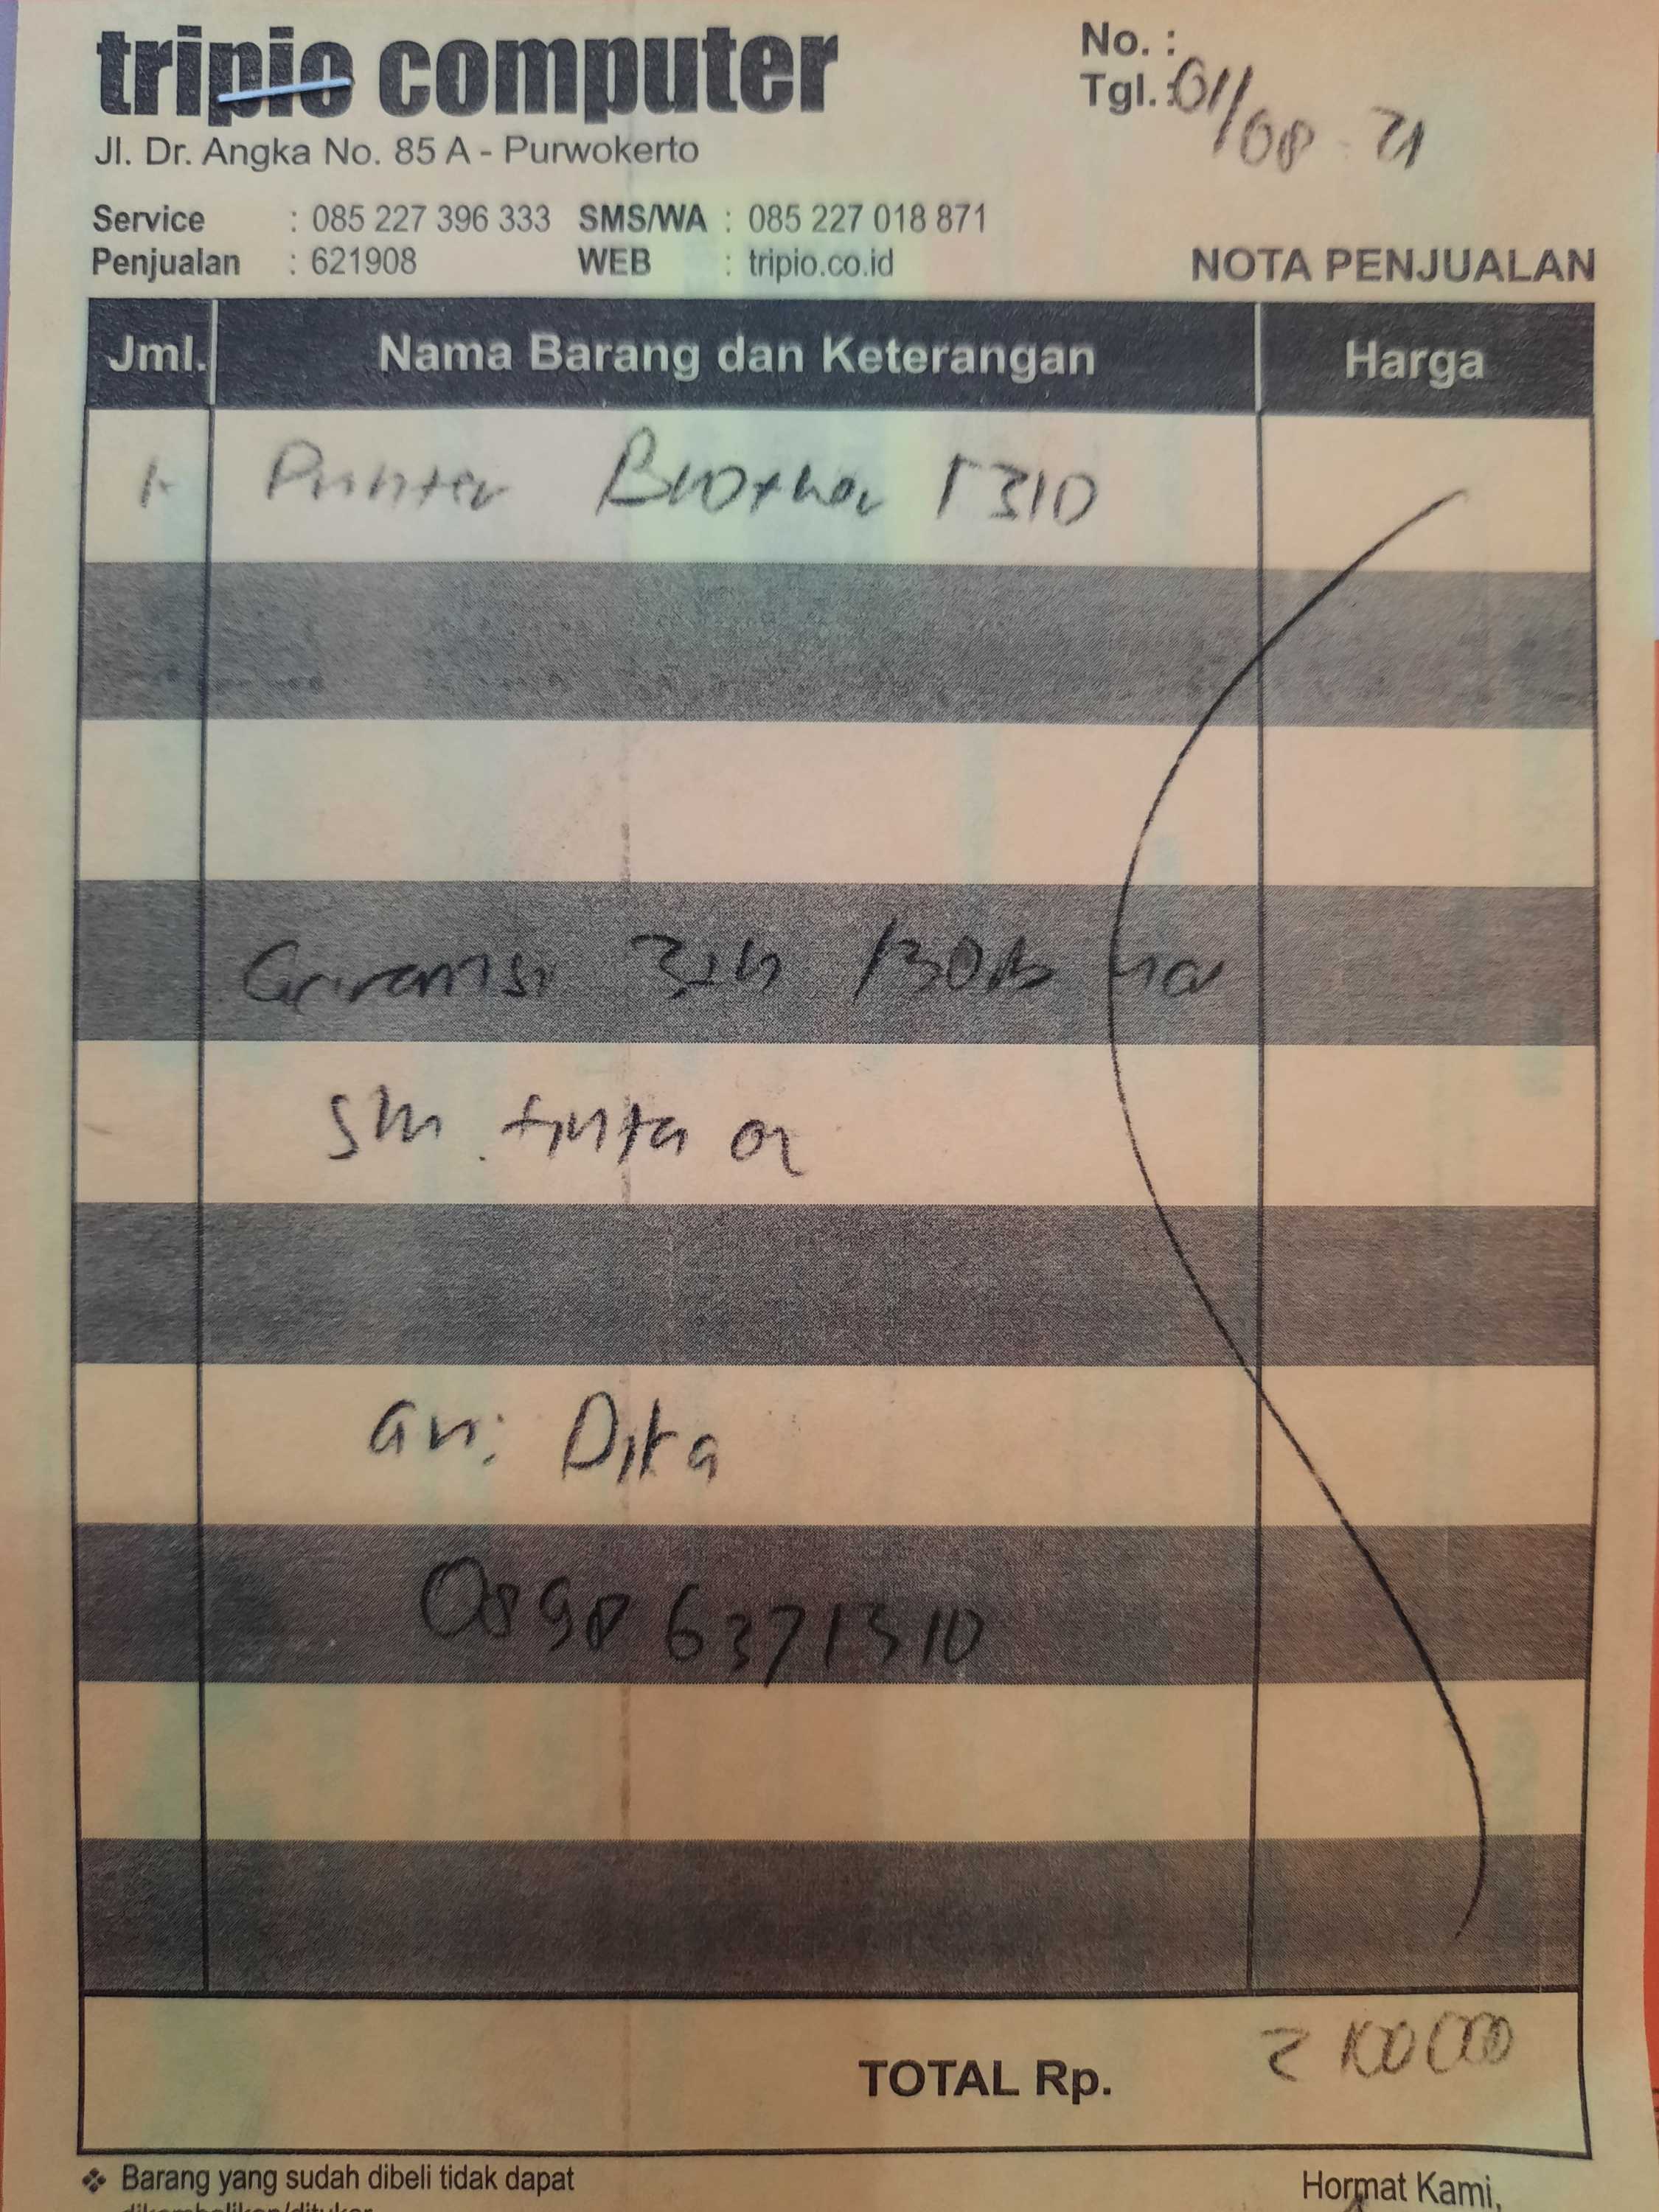 tripio computer
Jl. Dr. Angka No. 85 A - Purwokerto
No. :
Tgl. : 01/08-21
Service : 085 227 396 333 SMS/WA : 085 227 018 871
Penjualan : 621908 WEB : tripio.co.id
NOTA PENJUALAN
Jml. Nama Barang dan Keterangan Harga
1 Printer Brother T310
Garansi 3th
tinta
an: Dita
TOTAL Rp. 2100000
❖ Barang yang sudah dibeli tidak dapat
dikembalikan/ditukar
Hormat Kami,